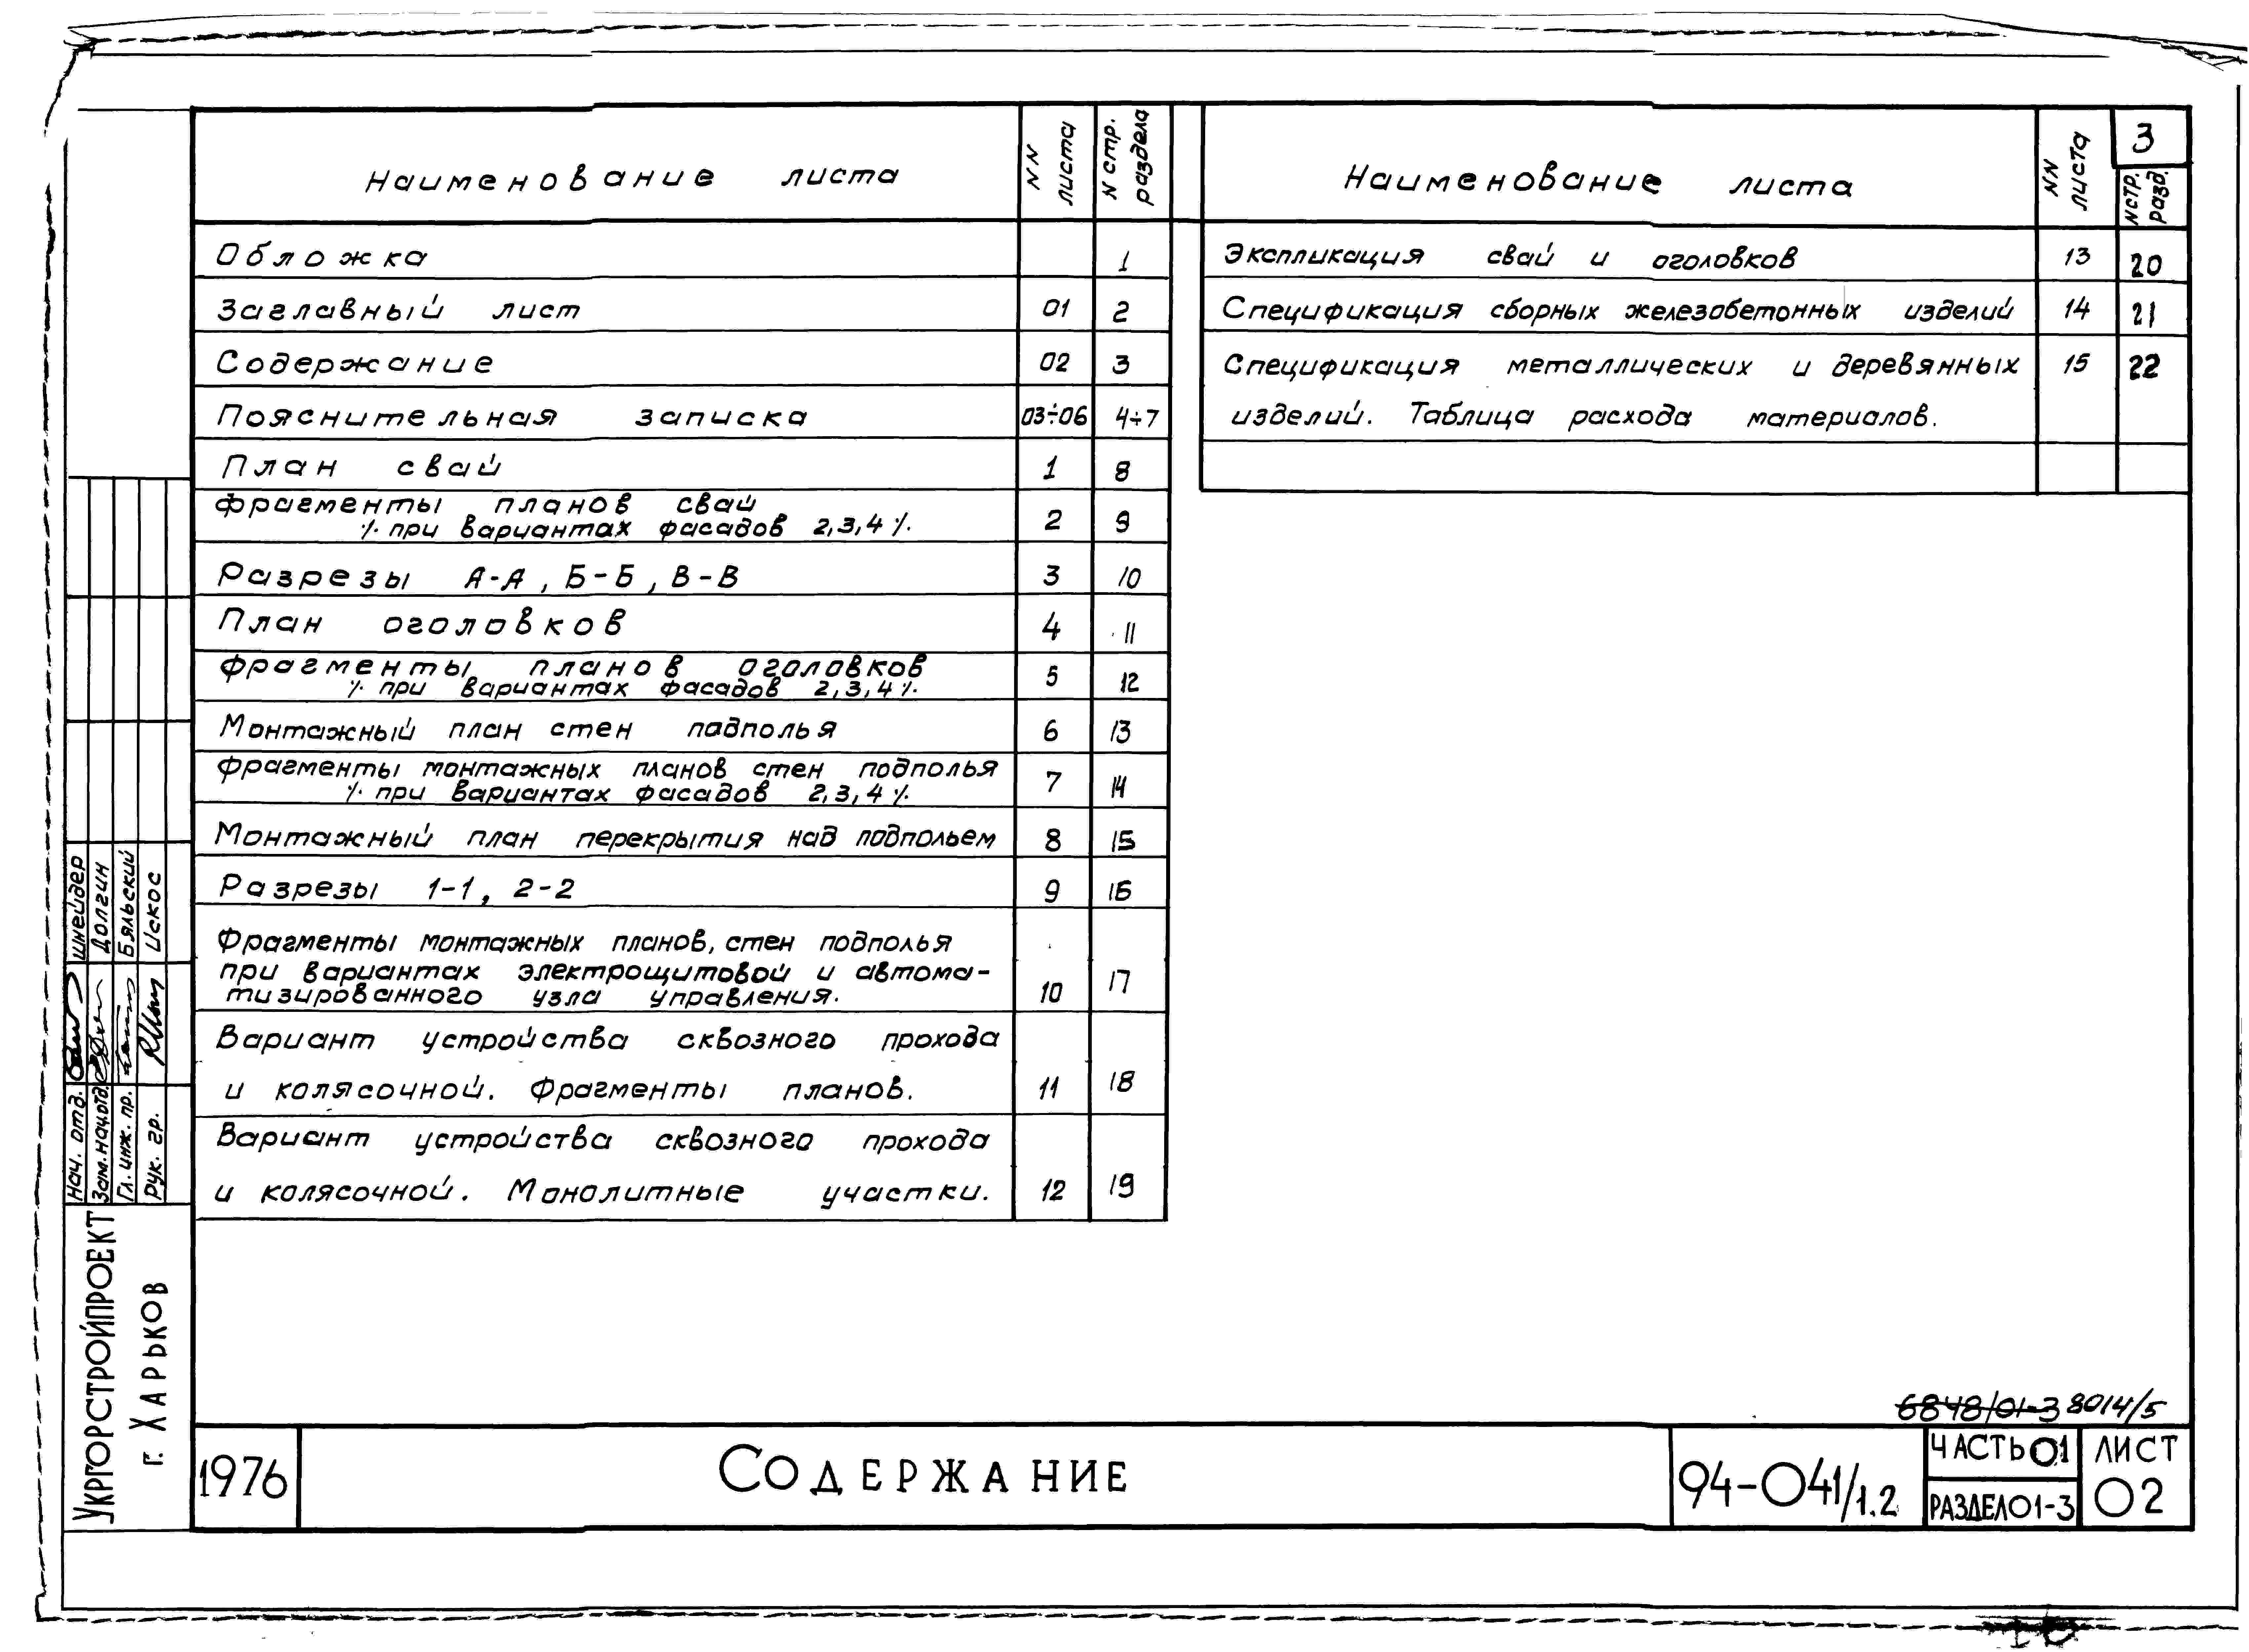 Наименование листа
NN листа
N стр. раздела
Обложка 1
Заглавный лист 01 2
Содержание 02 3
Пояснительная записка 03÷06 4÷7
План свай 1 8
Фрагменты планов свай
·/· при вариантах фасадов 2,3,4 ·/· 2 9
Разрезы А-А, Б-Б, В-В 3 10
План оголовков 4 11
Фрагменты планов оголовков
·/· при вариантах фасадов 2,3,4 ·/· 5 12
Монтажный план стен подполья 6 13
Фрагменты монтажных планов стен подполья
·/· при вариантах фасадов 2,3,4 ·/· 7 14
Монтажный план перекрытия над подпольем 8 15
Разрезы 1-1, 2-2 9 16
Фрагменты монтажных планов, стен подполья
при вариантах электрощитовой и автома-
тизированного узла управления. 10 17
Вариант устройства сквозного прохода
и колясочной. Фрагменты планов. 11 18
Вариант устройства сквозного прохода
и колясочной. Монолитные участки. 12 19
3
Наименование листа
NN листа
N стр. разд.
Экспликация свай и оголовков 13 20
Спецификация сборных железобетонных изделий 14 21
Спецификация металлических и деревянных 15 22
изделий. Таблица расхода материалов.
Нач. отд. Шнейдер
Зам.нач.отд. Долгин
Гл. инж. пр. Бяльский
Рук. гр. Искос
Укргорстройпроект
г. Харьков
6848/01-3 8014/5
1976
Содержание
94-041/1.2
Часть 01
Раздел 01-3
Лист
02